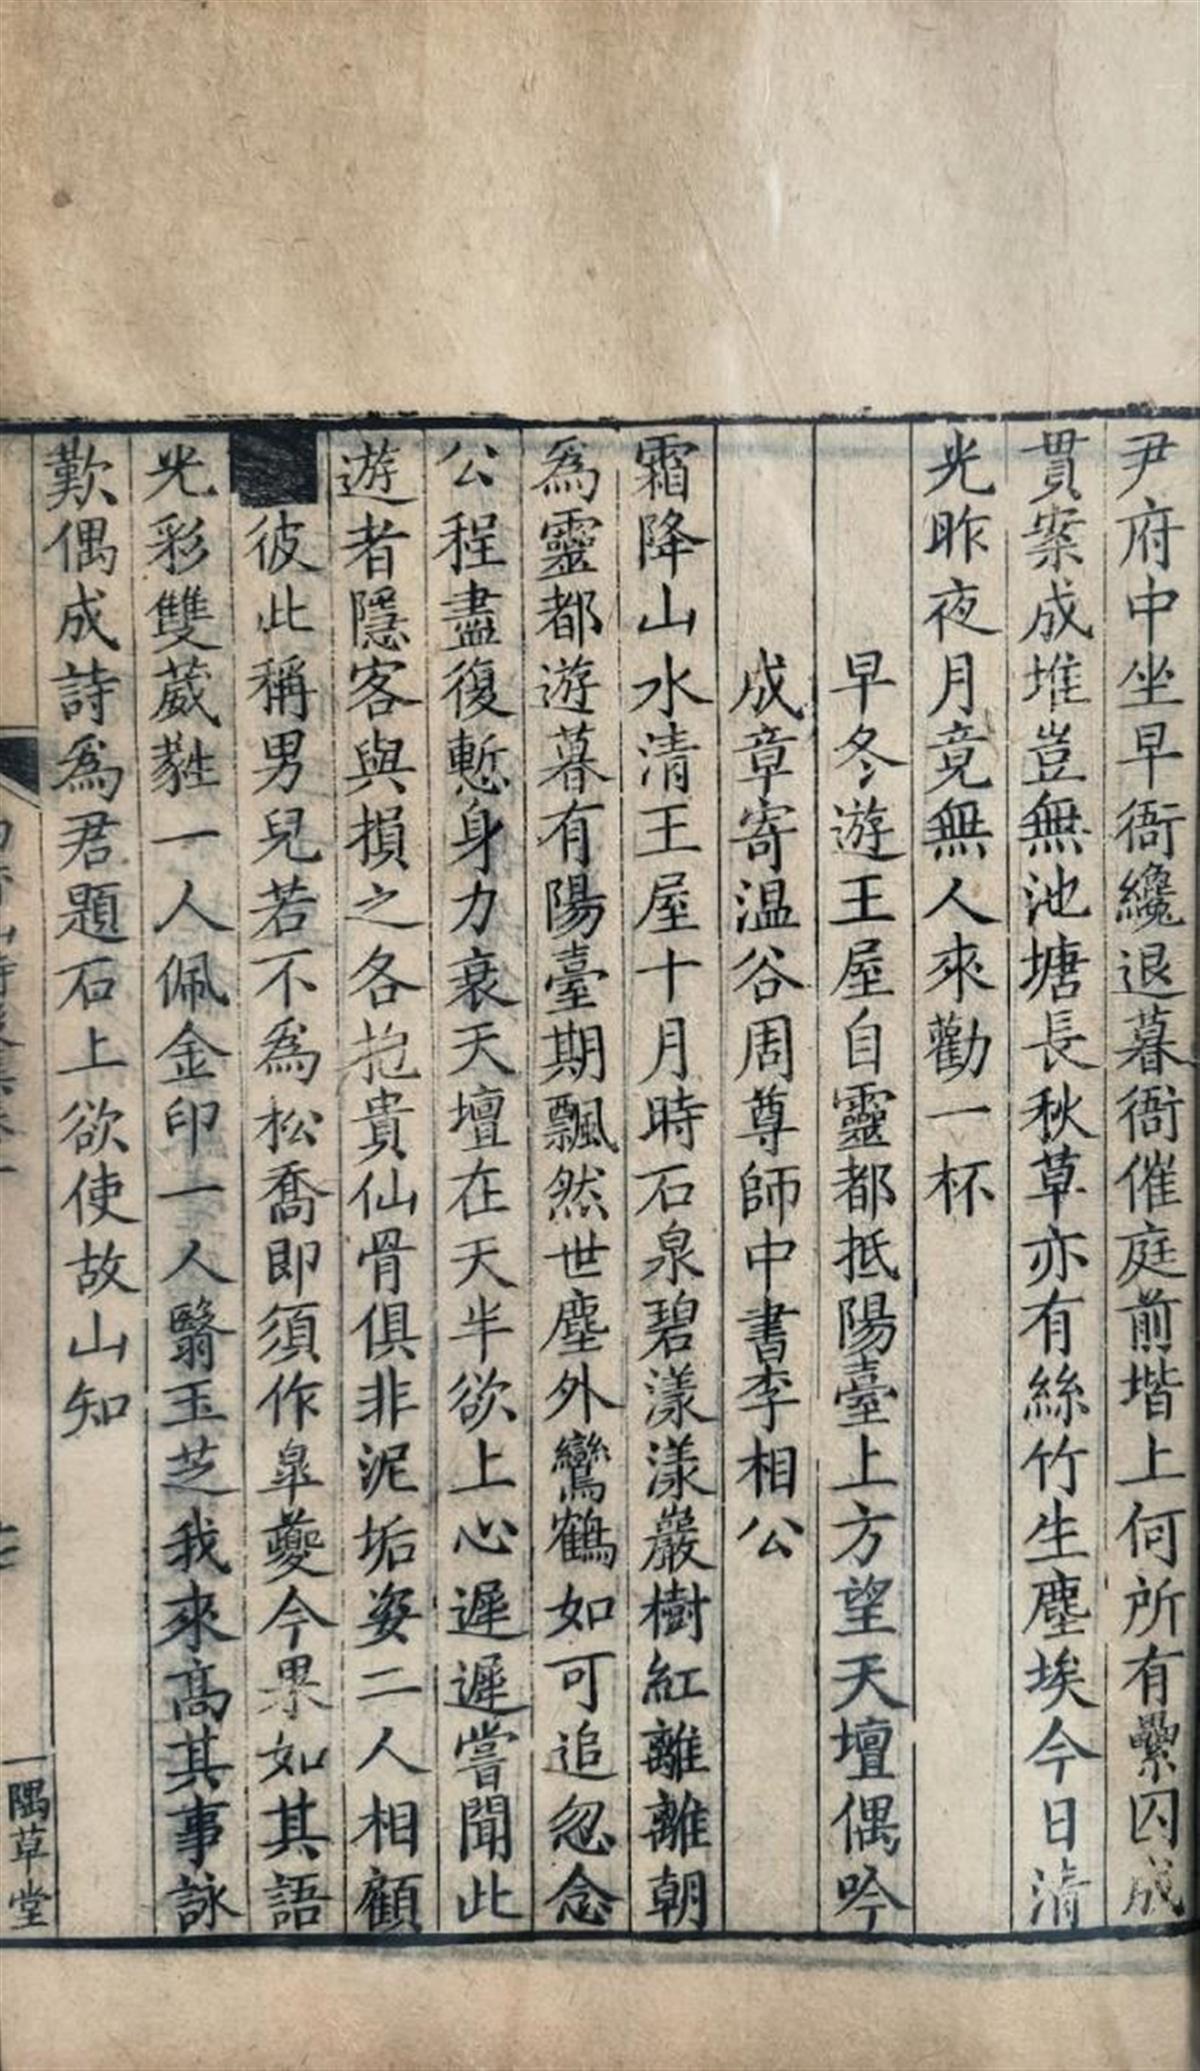 尹府中坐早衙纔退暮衙催庭前堦上何所有纍囚成
貫案成堆豈無池塘長秋草亦有絲竹生塵埃今日清
光昨夜月竟無人來勸一杯
早冬遊王屋自靈都抵陽臺上方望天壇偶吟
成章寄温谷周尊師中書李相公
霜降山水清王屋十月時石泉碧漾漾巖樹紅離離朝
為靈都遊暮有陽臺期飄然世塵外鸞鶴如可追忽念
公程盡復慙身力衰天壇在天半欲上心遲遲嘗聞此
遊者隱客與損之各抱貴仙骨俱非泥垢姿二人相顧
彼此稱男兒若不為松喬即須作皐夔今果如其語
光彩雙葳蕤一人佩金印一人翳玉芝我來高其事詠
歎偶成詩為君題石上欲使故山知
一隅草堂